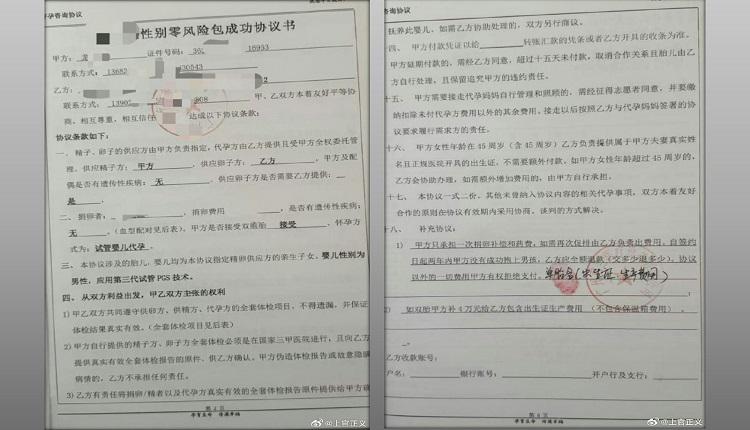 孕咨询协议
性别零风险包成功协议书
甲方：龙
证件号码：362 16953
联系方式：13682 30543
乙方：
联系方式：13902 808 甲、乙双方本着友好平等协
商，相互尊重，相互信任 达成以下协议条款：
协议条款如下：
一、精子、卵子的供应方由甲方负责指定，代孕方由乙方提供且受甲方全权委托管
理。供应精子方：甲方，供应卵子方：乙方，甲方及配
偶是否有遗传性疾病：无，供应卵子方是否需要乙方提供：
是。
二、捐卵者： ，捐卵费用 ，是否有遗传性疾病：
无。（血型配对见后表），甲方是否接受双胞胎 接受，怀孕方
式为：试管婴儿代孕。
三、本协议涉及的胎儿、婴儿均为本协议指定精卵供应方的亲生子女。婴儿性别为
男性，应用第三代试管 PGS 技术。
四、从双方利益出发，甲乙双方主张的权利
1)甲乙双方共同遵守供卵方、供精方、代孕方的全套体检项目，不得遗漏，并保证
体检结果真实有效。（全套体检项目见后表）
2)甲方自行提供的精子方、卵子方全套体检必须是在国家三甲医院进行，且向乙方
提供真实有效全套体检报告的原件，供乙方确认。甲方伪造体检报告或故意隐瞒
病情的，乙方不承担任何责任。
3)乙方有责任将捐卵/精者以及代孕方真实有效的全套体检报告原件提供给甲方确
孕育生命 传递幸福
@上官正义
咨询协议
抚养此婴儿，如需乙方协助处理的，双方另行商议。
十四、甲方付款凭证以给 转账汇款的凭条或者乙方开具的收条为准。
甲方延期付款的，需经乙方同意，超过十五天未付款，取消合作关系且胎儿由乙
方自行处理，且保留追究甲方的违约责任。
十五、甲方需要接走代孕妈妈自行管理和照顾的，需经征得志愿者同意，并要缴
纳扣除未付代孕方费用以外的其余费用，接走以后按照乙方与代孕妈妈签署的协
议要求履行需求方的责任。
十六、甲方女性年龄在 45 周岁（含 45 周岁）乙方负责提供属于甲方夫妻真实姓
名且正规医院开具的出生证，不需要额外付款，如甲方女性年龄超过 45 周岁的，
乙方会协助办理，如需额外增加费用的，由甲方自行承担。
十七、本协议一式二份，其他未曾纳入协议内容的相关代孕事项，双方本着友好
合作的原则在协议有效期内采用协商、谈判的方式解决。
十八、补充协议：
1) 甲方只承担一次捐卵补偿和费用；如需再次促排由乙方负责出费用，自签约
日起两年内甲方没有成功抱上男孩，乙方应全额退款（交多少退多少）。协议
以外的一切费用甲方有权拒绝支付。单胎含(出生证.生产费用)
2) 如双胎甲方补 4 万元给乙方包含出生证生产费用（不包含保温箱费用）
乙方收款账号：
户名： 银行账号： 开户行及支行：
第 6 页
孕育生命 传递幸福
@上官正义